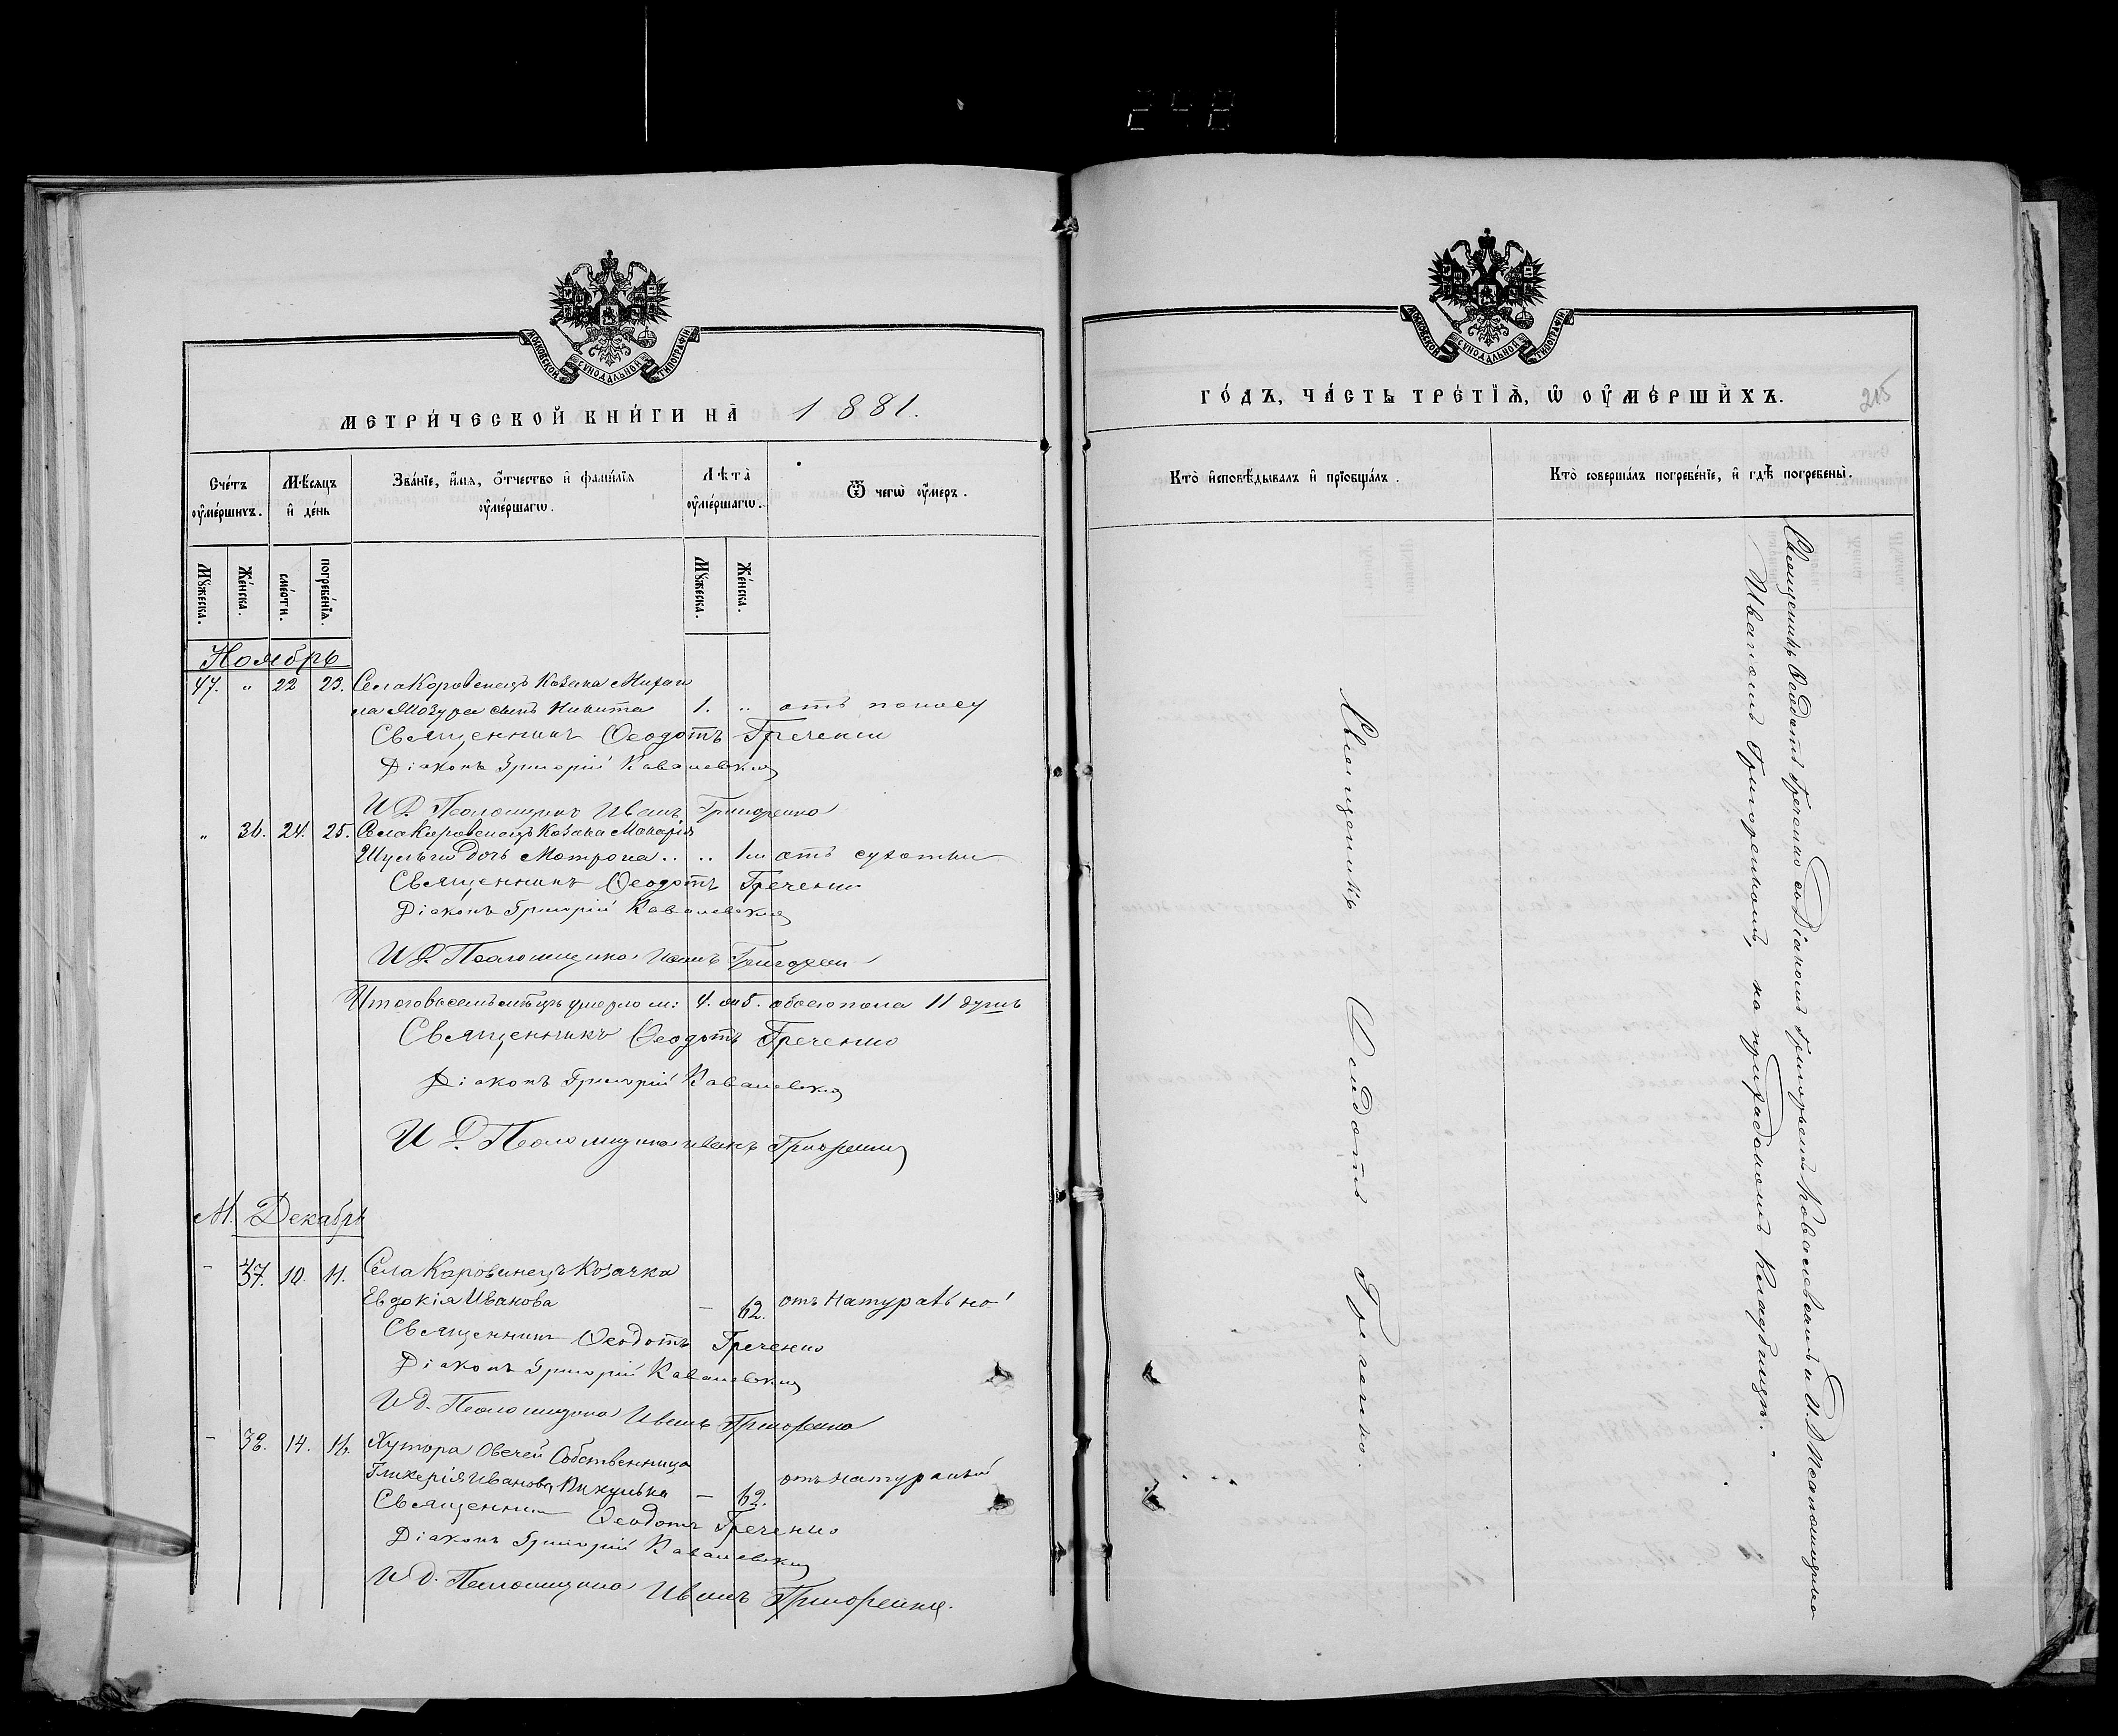 298
МОСКОВСКОЙ СѴНОДАЛЬНОЙ ТИПОГРАФІИ
МЕТРИ́ЧЕСКОЙ КНИ́ГИ НА̀ 1881.
Сче́тъ ᲂу҆ме́ршихъ.
Мѣ́сяцъ и҆ де́нь
Зва́нїе, и҆́мѧ, ѻ҆́тчество и҆ фами́лїѧ ᲂу҆ме́ршагѡ.
Лѣ̑та ᲂу҆ме́ршагѡ.
Ѿ чегѡ̀ ᲂу҆́меръ.
Мꙋ́жеска. Же́нска. сме́рти. погребе́нїѧ. Мꙋ́жеска. Же́нска.
Ноябрь
47. " 22 23. Села Коровенецъ Козака Михаи
ла Мазура сынъ Никита 1. " отъ поносу
Священникъ Ѳеодотъ Греченко
Діаконъ Григорій Кавалевскій
И Д. Псаломщика Иванъ Григоренко
" 36. 24. 25. Села Коровенецъ Козака Макарія
Шульги дочь Матрона .. .. отъ сухотки
Священникъ Ѳеодотъ Греченко
Діаконъ Григорій Кавалевскій
И Д. Псаломщика Иванъ Григорен
Итого въ семъ мѣсяцѣ умерло м: обоего пола 11 душъ
Священникъ Ѳеодотъ Греченко
Діаконъ Григорій Кавалевскій
И Д. Псаломщика Иванъ Григоренко
М. Декабрь
- 37. 10. 11. Села Коровинецъ Козачка
Евдокія Иванова - 62. отъ натуральной
Священникъ Ѳеодотъ Греченко
Діаконъ Григорій Кавалевскій
И Д. Псаломщика Иванъ Григоренко
- 38. 14. 16. Хутора Овечей Собственница
Гликерія Иванова - 62. отъ натуральной
Священникъ Ѳеодотъ Греченко
Діаконъ Григорій Кавалевскій
И Д. Псаломщика Иванъ Григоренко.
МОСКОВСКОЙ СѴНОДАЛЬНОЙ ТИПОГРАФІИ
ГО́ДЪ, ЧА́СТЬ ТРЕ́ТЇѦ, Ѡ҆ ᲂУ҆МЕ́РШИХЪ.
215
Кто̀ и҆сповѣ́дывалъ и҆ прїѻбща́лъ.
Кто̀ соверша́лъ погребе́нїе, и҆ гдѣ̀ погребены̀.
Священникъ Ѳеодотъ Греченко.
Священникъ Ѳеодотъ Греченко съ Діакономъ Григоріемъ Ковалевскимъ и И. Д. Псаломщика
Иваномъ Григоренкомъ, на приходскомъ кладбищѣ.